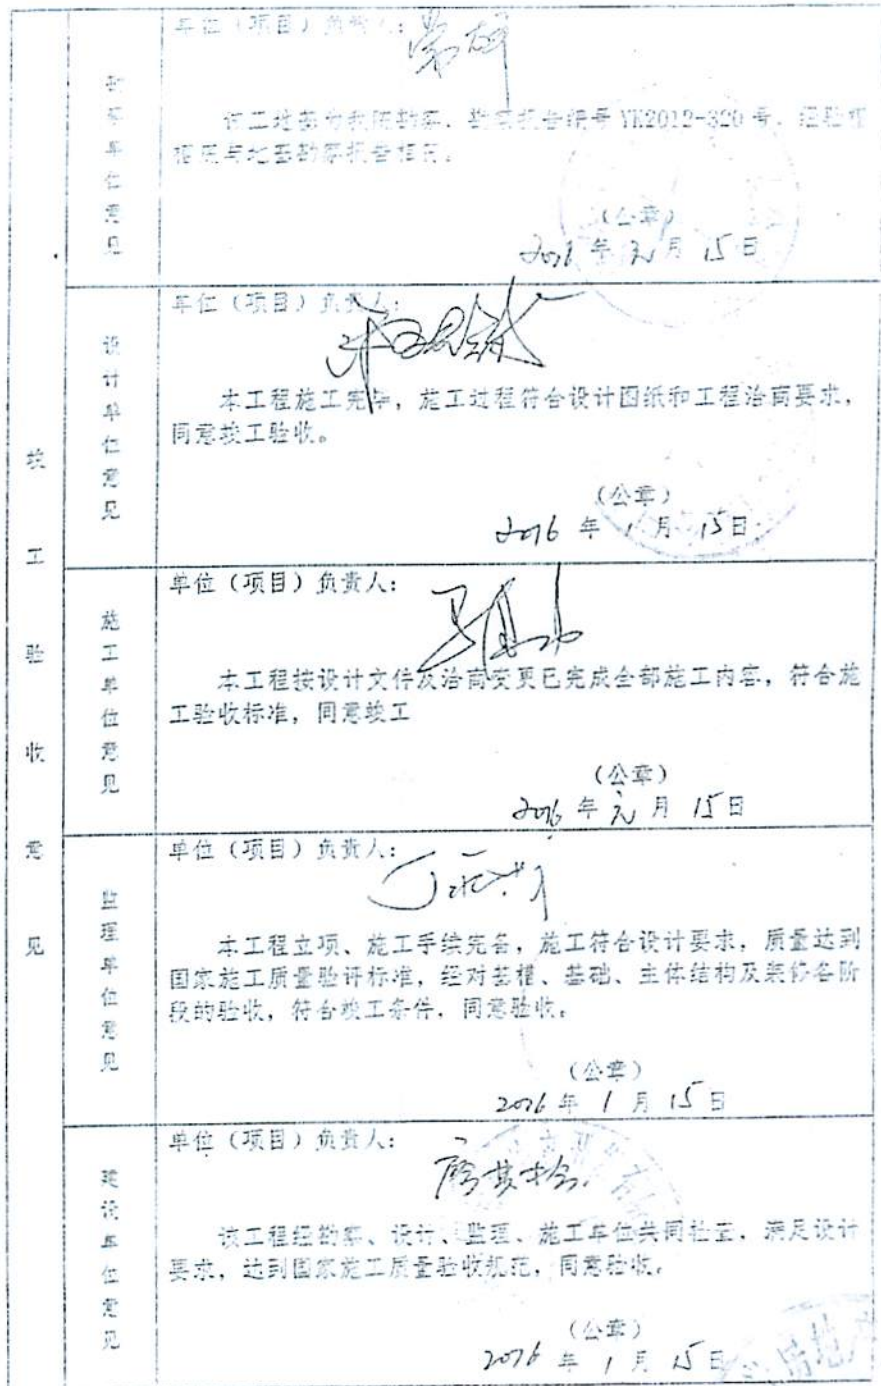 竣工验收意见
勘察单位意见
单位（项目）负责人：
该工地基为我院勘察，勘察报告编号 YK2012-320 号，经验槽
槽底与地基勘察报告相符。
（公章）
年 元 月 15 日
设计单位意见
单位（项目）负责人：
本工程施工完毕，施工过程符合设计图纸和工程洽商要求，
同意竣工验收。
（公章）
2016 年 1 月 15 日
施工单位意见
单位（项目）负责人：
本工程按设计文件及洽商变更已完成全部施工内容，符合施
工验收标准，同意竣工
（公章）
2016 年 元 月 15 日
监理单位意见
单位（项目）负责人：
本工程立项、施工手续完备，施工符合设计要求，质量达到
国家施工质量验评标准，经对基槽、基础、主体结构及装修各阶
段的验收，符合竣工条件，同意验收。
（公章）
2016 年 1 月 15 日
建设单位意见
单位（项目）负责人：
该工程经勘察、设计、监理、施工单位共同检查，满足设计
要求，达到国家施工质量验收规范，同意验收。
（公章）
2016 年 1 月 15 日